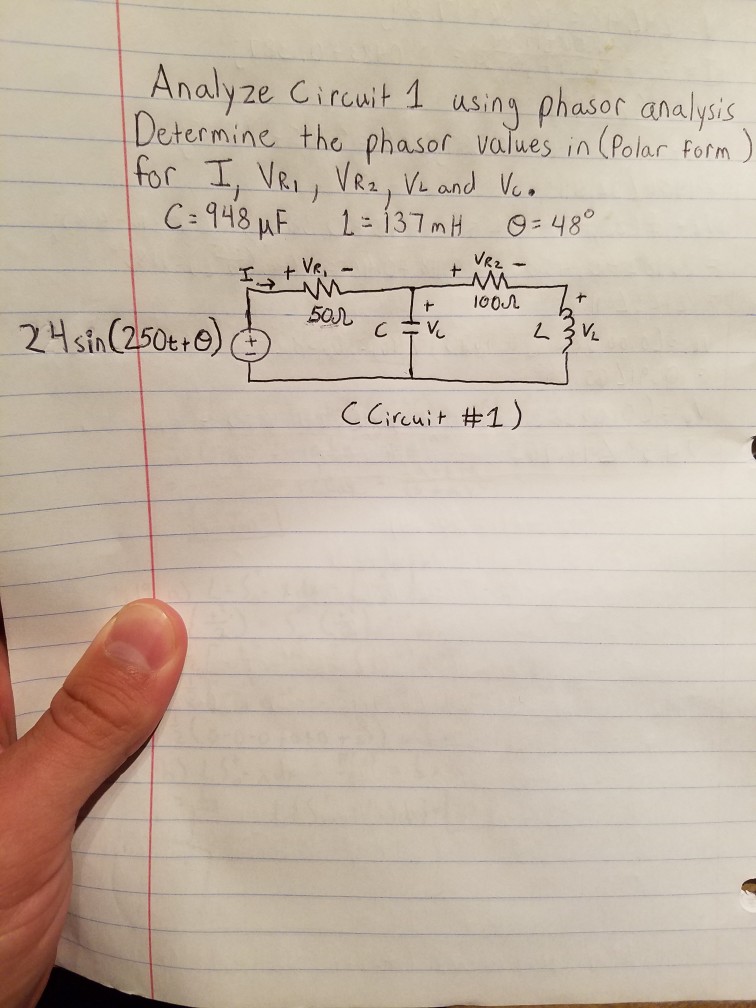 Analyze Circuit 1 using phasor analysis
Determine the phasor values in (Polar form)
for I, VR1, VR2, VL and Vc.
C = 948 μF L = 137 mH θ = 48°
I → + VR1 - + VR2 -
50Ω 100Ω
24 sin(250t+θ) + - C + Vc L + VL
(Circuit #1)